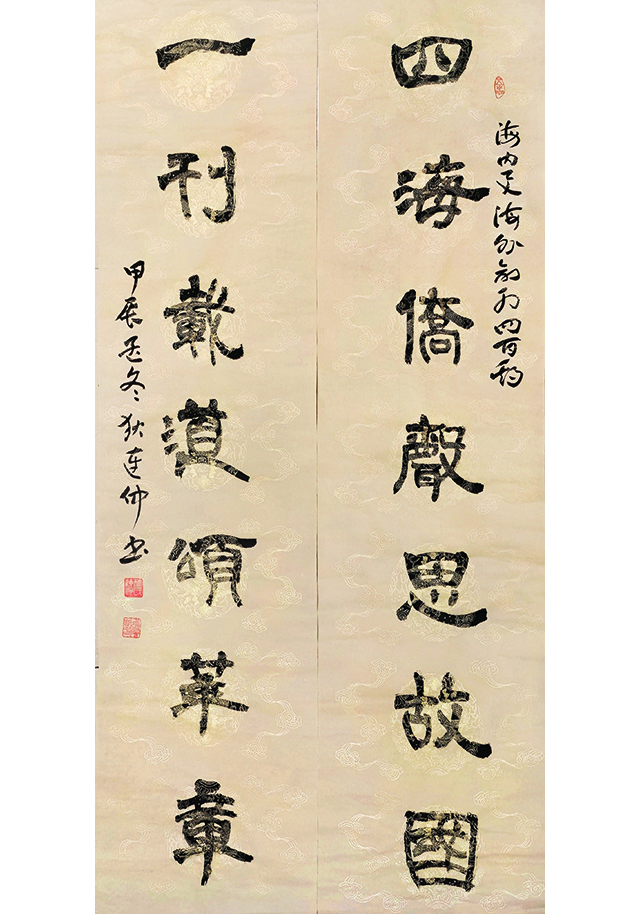 海内与海外創刊四百期
四海僑聲思故國
一刊載道頌華章
甲辰孟冬狄連仲書